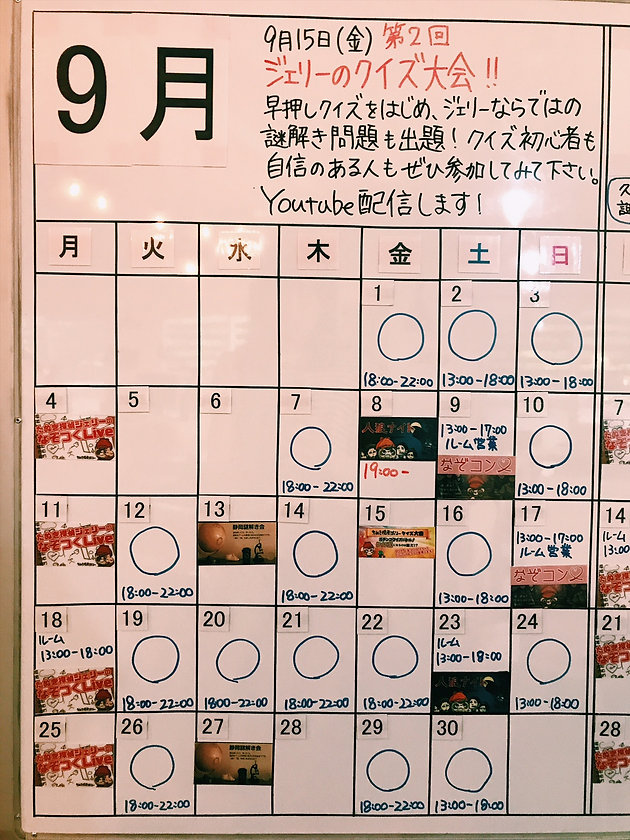 9月
9月15日(金) 第2回
ジェリーのクイズ大会!!
早押しクイズをはじめ、ジェリーならではの
謎解き問題も出題！クイズ初心者も
自信のある人もぜひ参加してみて下さい。
Youtube配信します！
月 火 水 木 金 土 日
1 2 3
18:00-22:00 13:00-18:00 13:00-18:00
4 5 6 7 8 9 10 7
なぞつくLive
18:00-22:00
人狼ナイト
19:00-
13:00-17:00
ルーム営業
なぞコン
13:00-18:00
11 12 13 14 15 16 17 14
なぞつくLive
18:00-22:00
静岡謎解き会
18:00-22:00
13:00-18:00
13:00-17:00
ルーム営業
なぞコン
18 19 20 21 22 23 24 21
ルーム
13:00-18:00
なぞつくLive
18:00-22:00 18:00-22:00 18:00-22:00 18:00-22:00
ルーム
13:00-18:00
人狼ナイト
13:00-18:00
25 26 27 28 29 30 28
なぞつくLive
18:00-22:00
静岡謎解き会
18:00-22:00 13:00-18:00